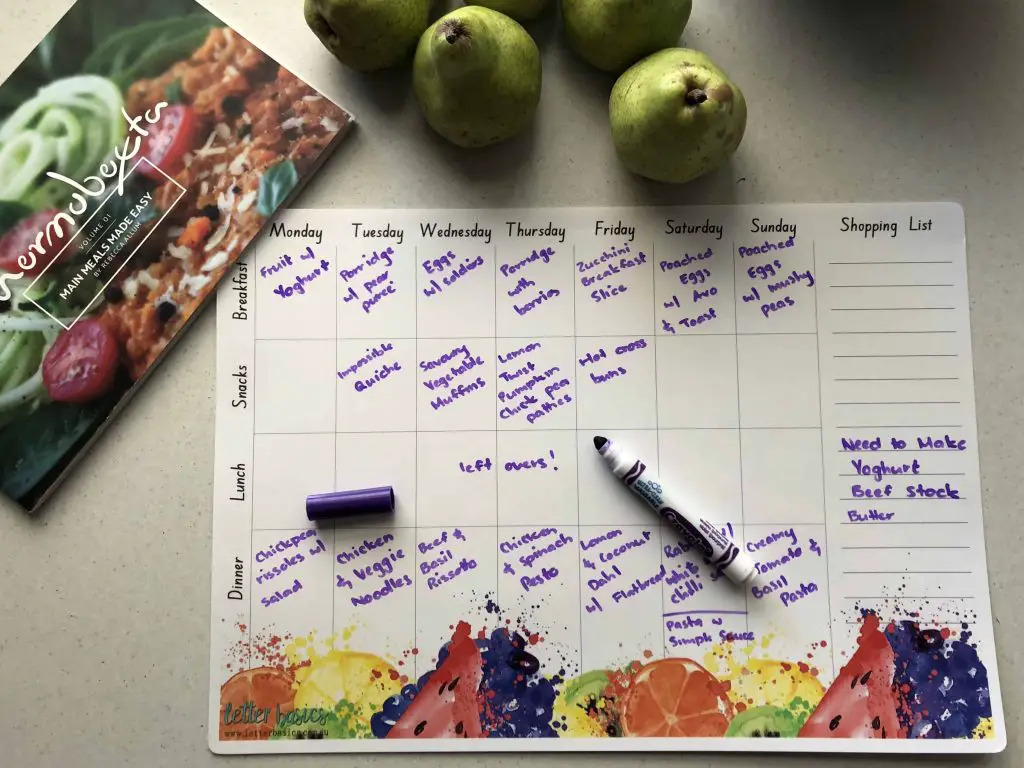 thermobexta
VOLUME 01
MAIN MEALS MADE EASY
BY REBECCA ALLUM
Monday Tuesday Wednesday Thursday Friday Saturday Sunday Shopping List
Breakfast
Fruit w/
Yoghurt
Porridge
w/ pear
puree
Eggs
w/ soldiers
Porridge
with
berries
Zucchini
Breakfast
Slice
Poached
Eggs
w/ Avo
& Toast
Poached
Eggs
w/ mushy
peas
Snacks
Impossible
Quiche
Savoury
Vegetable
Muffins
Lemon
Twist
Pumpkin
Chick pea
patties
Hot cross
buns
Lunch
left overs!
Need to Make
Yoghurt
Beef Stock
Butter
Dinner
Chickpea
rissoles w/
salad
Chicken
& Veggie
Noodles
Beef &
Basil
Risotto
Chicken
& spinach
Pesto
Lemon
& Coconut
Dahl
w/ Flatbread
chilli
Pasta w
Simple Sauce
Creamy
Tomato &
Basil
Pasta
Crayola
letter basics
www.letterbasics.com.au